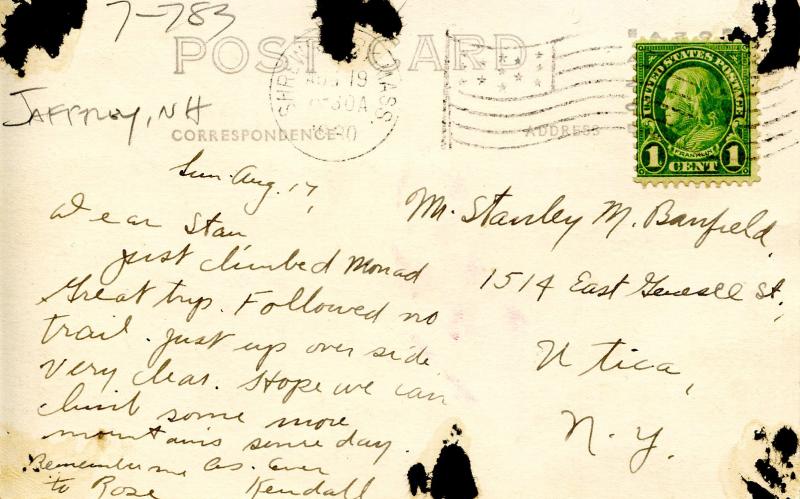 7-783
POST CARD
Jaffrey, NH
SHREW MASS.
AUG 19
30A
1930
CORRESPONDENCE
ADDRESS
UNITED STATES POSTAGE
FRANKLIN
1 CENT 1
Sun. Aug. 17,
Dear Stan
Just climbed Monad
Great trip. Followed no
trail. Just up over side
Very clear. Hope we can
climb some more
mountains some day.
Remember me As. Ever
to Rose Kendall
Mr. Stanley M. Banfield,
1514 East Genesee St.,
Utica,
N.Y.